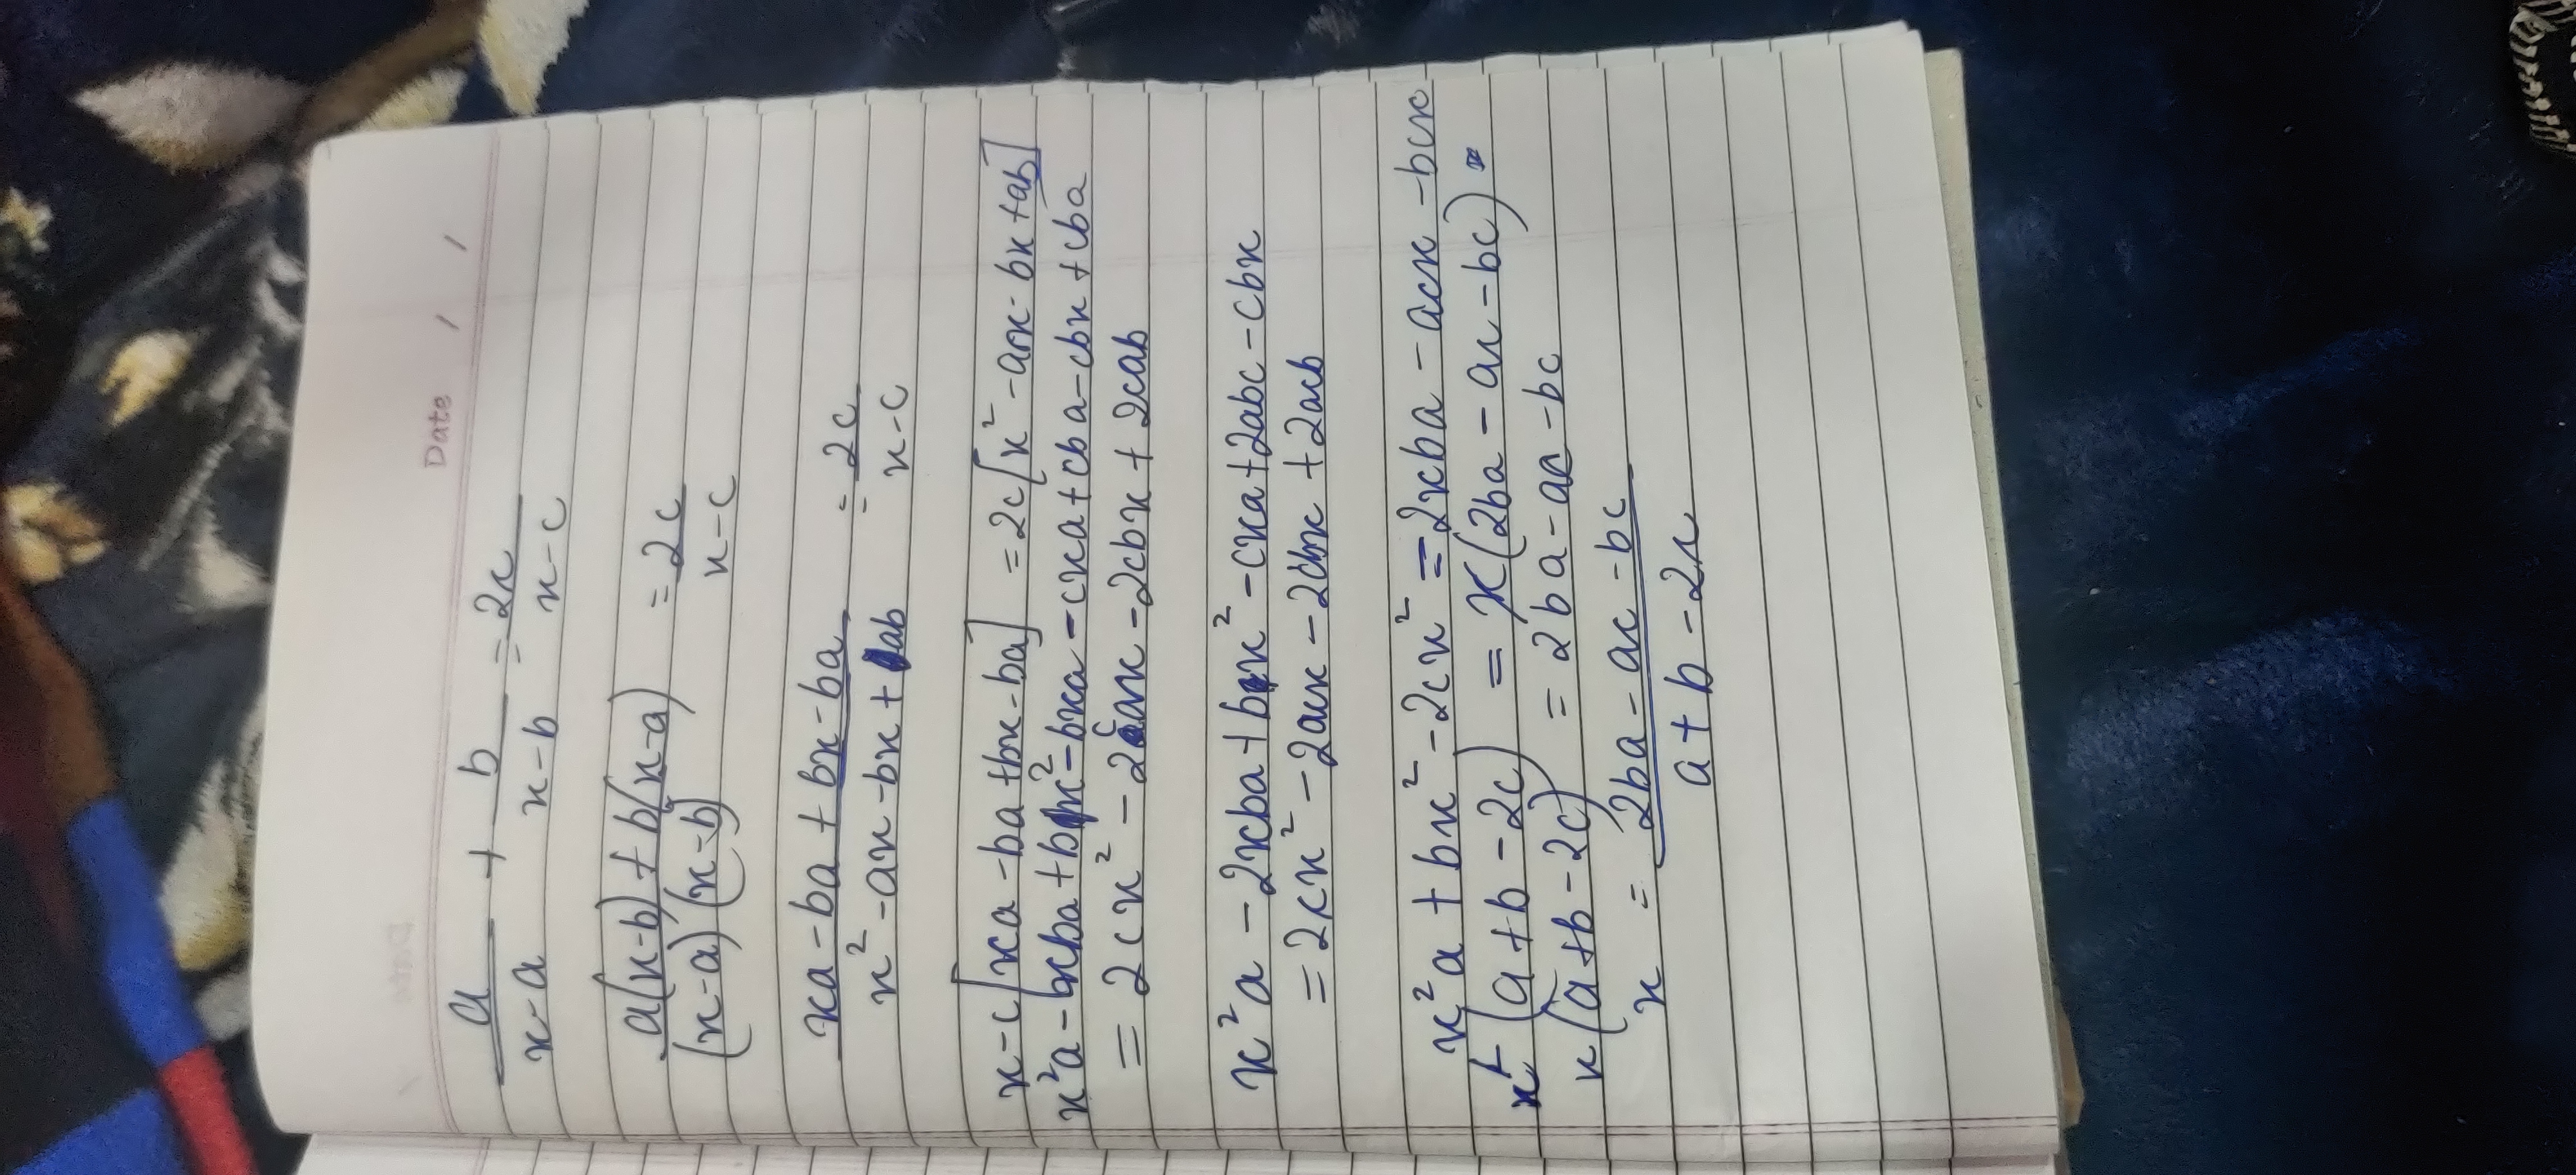 Date / /
a/(x-a) + b/(x-b) = 2x/(x-c)
(a(x-b)+b(x-a))/((x-a)(x-b)) = 2c/(x-c)
(xa-ba+bx-ba)/(x²-ax-bx+ab) = 2c/(x-c)
x-c[xa-ba+bx-ba] = 2c[x²-ax-bx+ab]
x²a-bxba+bx²-bxa-cxa+cba-cbx+cba
= 2cx²-2cax-2cbx+2cab
x²a-2xba+bx²-cxa+2abc-cbx
= 2cx²-2acx-2cbx+2acb
x²a+bx²-2cx² = 2xba-acx-bcx
x²(a+b-2c) = x(2ba-ac-bc)
x(a+b-2c) = 2ba-ac-bc
x = (2ba-ac-bc)/(a+b-2x)